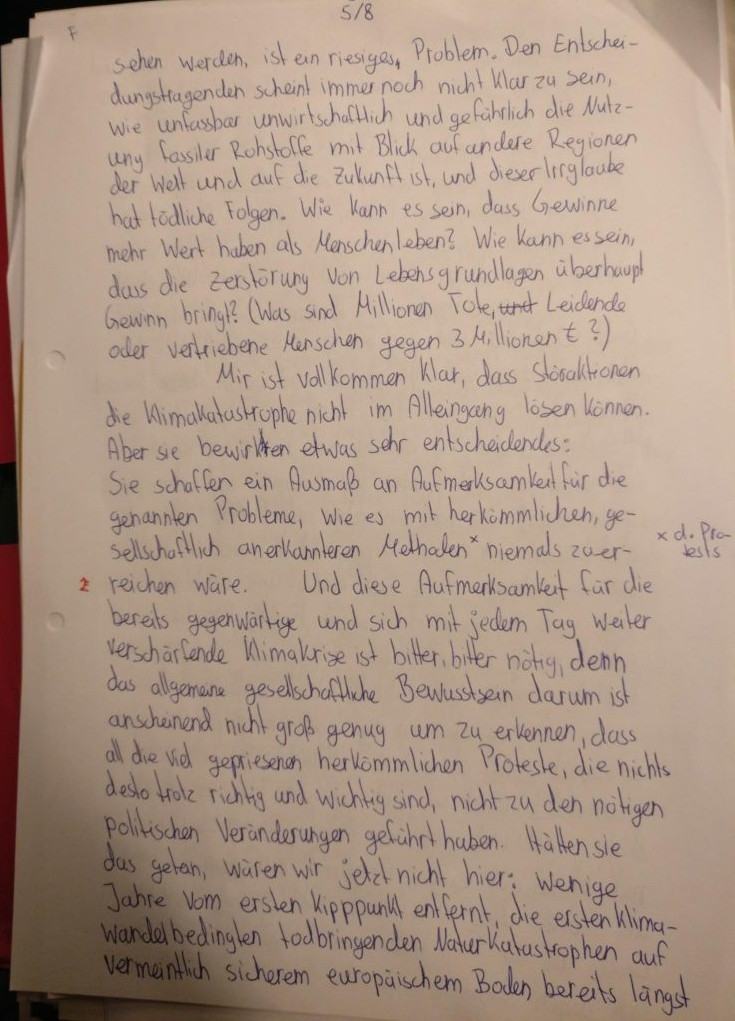 5/8
F
sehen werden, ist ein riesiges, Problem. Den Entschei-
dungstragenden scheint immer noch nicht klar zu sein,
wie unfassbar unwirtschaftlich und gefährlich die Nutz-
ung fossiler Rohstoffe mit Blick auf andere Regionen
der Welt und auf die Zukunft ist, und dieser Irrglaube
hat tödliche Folgen. Wie kann es sein, dass Gewinne
mehr Wert haben als Menschenleben? Wie kann es sein,
dass die Zerstörung von Lebensgrundlagen überhaupt
Gewinn bringt? (Was sind Millionen Tote, und Leidende
oder vertriebene Menschen gegen 3 Millionen t ?)
Mir ist vollkommen klar, dass Störaktionen
die Klimakatastrophe nicht im Alleingang lösen können.
Aber sie bewirken etwas sehr entscheidendes:
Sie schaffen ein Ausmaß an Aufmerksamkeit für die
genannten Probleme, wie es mit herkömmlichen, ge-
sellschaftlich anerkannteren Methoden x niemals zu er-
x d. Pro-
tests
2 reichen wäre. Und diese Aufmerksamkeit für die
bereits gegenwärtige und sich mit jedem Tag weiter
verschärfende Klimakrise ist bitter, bitter nötig, denn
das allgemeine gesellschaftliche Bewusstsein darum ist
anscheinend nicht groß genug um zu erkennen, dass
all die viel gepriesenen herkömmlichen Proteste, die nichts
desto trotz richtig und wichtig sind, nicht zu den nötigen
politischen Veränderungen geführt haben. Hätten sie
das getan, wären wir jetzt nicht hier: Wenige
Jahre vom ersten Kipppunkt entfernt, die ersten klima-
wandelbedingten todbringenden Naturkatastrophen auf
vermeintlich sicherem europäischem Boden bereits längst